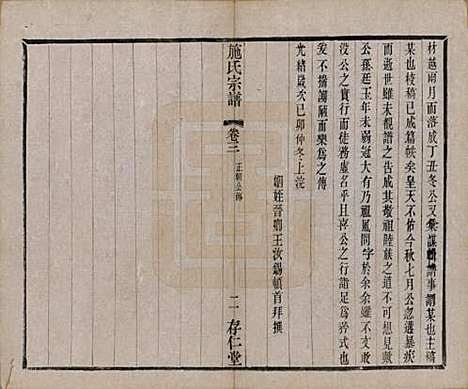 材越兩月而落成丁丑冬公又彙謀輯譜事謂某也主稿
某也校稿已成篇帙矣皇天不佑今秋七月公忽遘暴疾
而逝世雖未覩譜之告成其敬祖睦族之心不可想見歟
公孫廷玉年未弱冠大有乃祖風問字於余余嫌不文敢
没公之實行而徒務虛名乎哉喜公之行誼足為矜式也
爰不揣謭陋而樂為之傳
光緒歲次己卯仲冬上浣
姻姪晉卿王汝錫頓首拜撰
施氏宗譜
卷三
正朝公傳
二
存仁堂